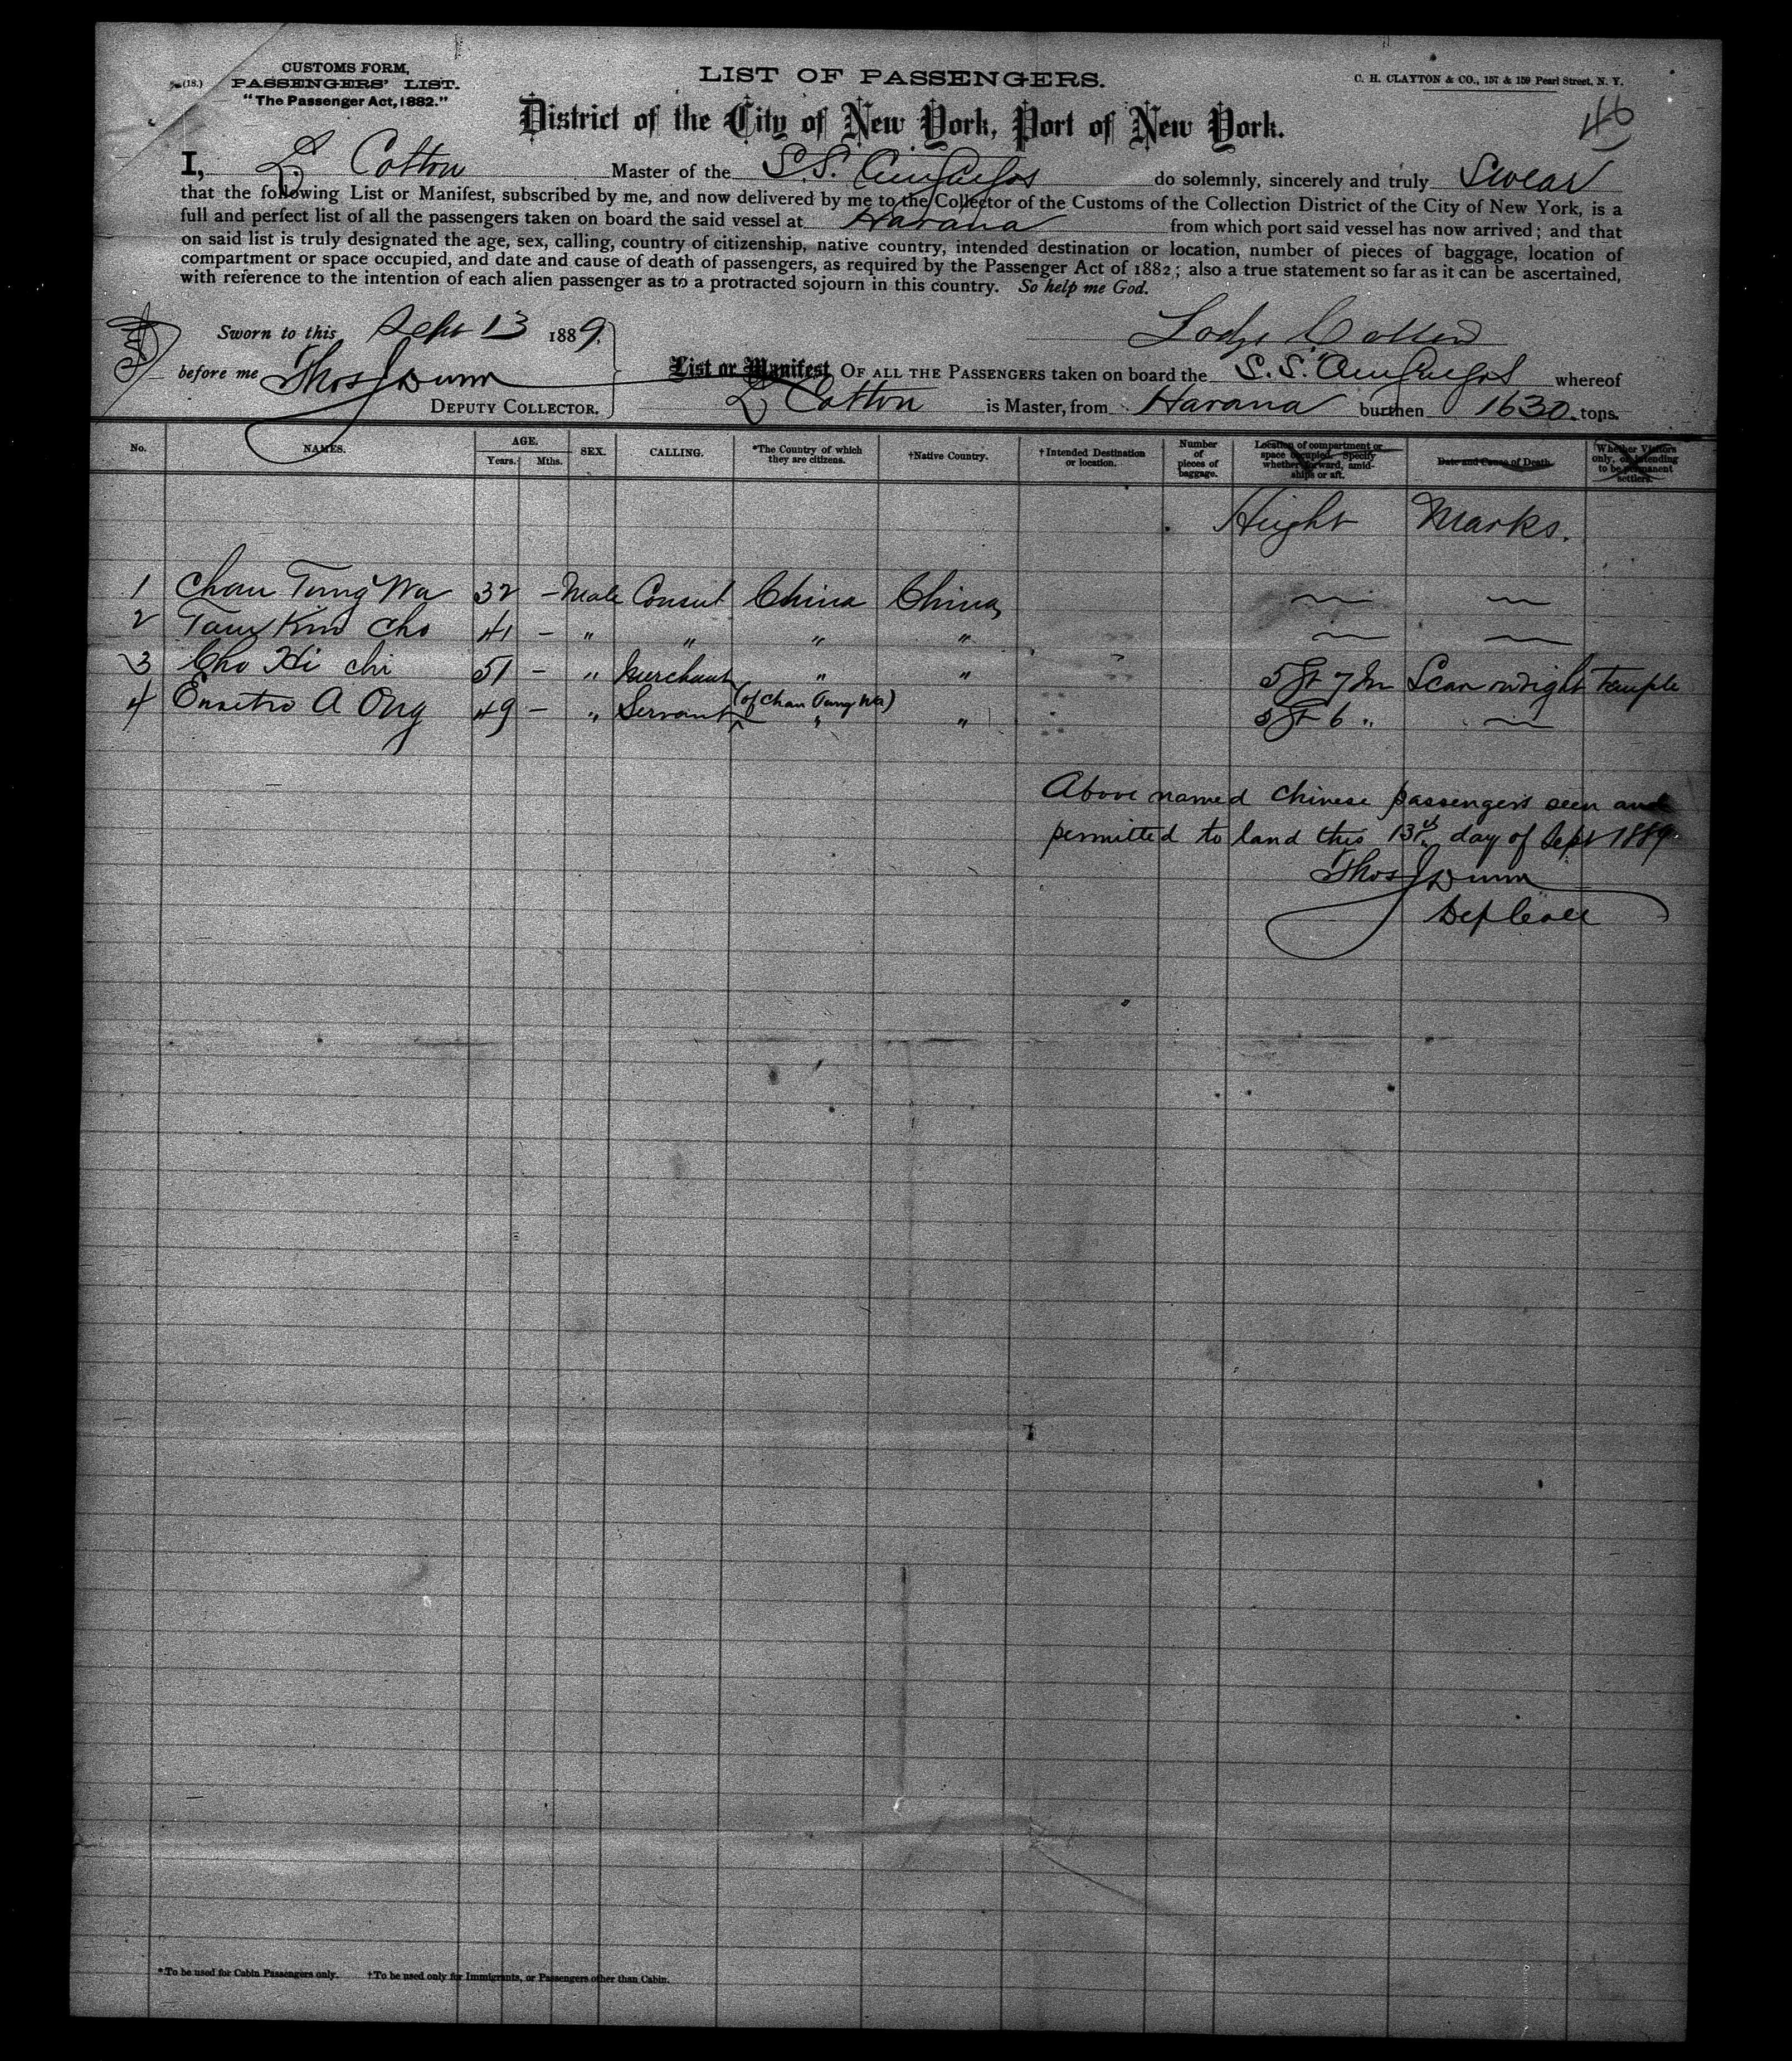 CUSTOMS FORM,
PASSENGERS' LIST.
"The Passenger Act, 1882."
(18.)
LIST OF PASSENGERS.
C. H. CLAYTON & CO., 157 & 159 Pearl Street, N. Y.
District of the City of New York, Port of New York.
46
I, L. Cotton Master of the S.S. Cienfuegos do solemnly, sincerely and truly Swear
that the following List or Manifest, subscribed by me, and now delivered by me to the Collector of the Customs of the Collection District of the City of New York, is a
full and perfect list of all the passengers taken on board the said vessel at Havana from which port said vessel has now arrived; and that
on said list is truly designated the age, sex, calling, country of citizenship, native country, intended destination or location, number of pieces of baggage, location of
compartment or space occupied, and date and cause of death of passengers, as required by the Passenger Act of 1882; also a true statement so far as it can be ascertained,
with reference to the intention of each alien passenger as to a protracted sojourn in this country. So help me God.
Sworn to this Sept 13 1889.
Cotton
before me Thos J Dunn
DEPUTY COLLECTOR.
List or Manifest OF ALL THE PASSENGERS taken on board the S.S. Cienfuegos whereof
L Cotton is Master, from Havana burthen 1630 tons.
No. NAMES. AGE. Years. Mths. SEX. CALLING. *The Country of which they are citizens. †Native Country. †Intended Destination or location. Number of pieces of baggage. Location of compartment or space occupied. Specify whether forward, amidships or aft. Date and Cause of Death. Whether Visitors only, or intending to be permanent settlers.
Hight Marks.
1 Chan Tung Wa 32 – Male Consul China China — —
2 Tang Kin Cho 41 – " " " " — —
3 Cho Hi Chi 51 – " Merchant " " 5 ft 7 In Scar on right Temple
4 A Ong 49 – " Servant (of Chan Tung Wa) " " 5 ft 6 " —
Above named Chinese passengers seen and
permitted to land this 13th day of Sept 1889.
Thos J Dunn
Dep Coll
*To be used for Cabin Passengers only. †To be used only for Immigrants, or Passengers other than Cabin.